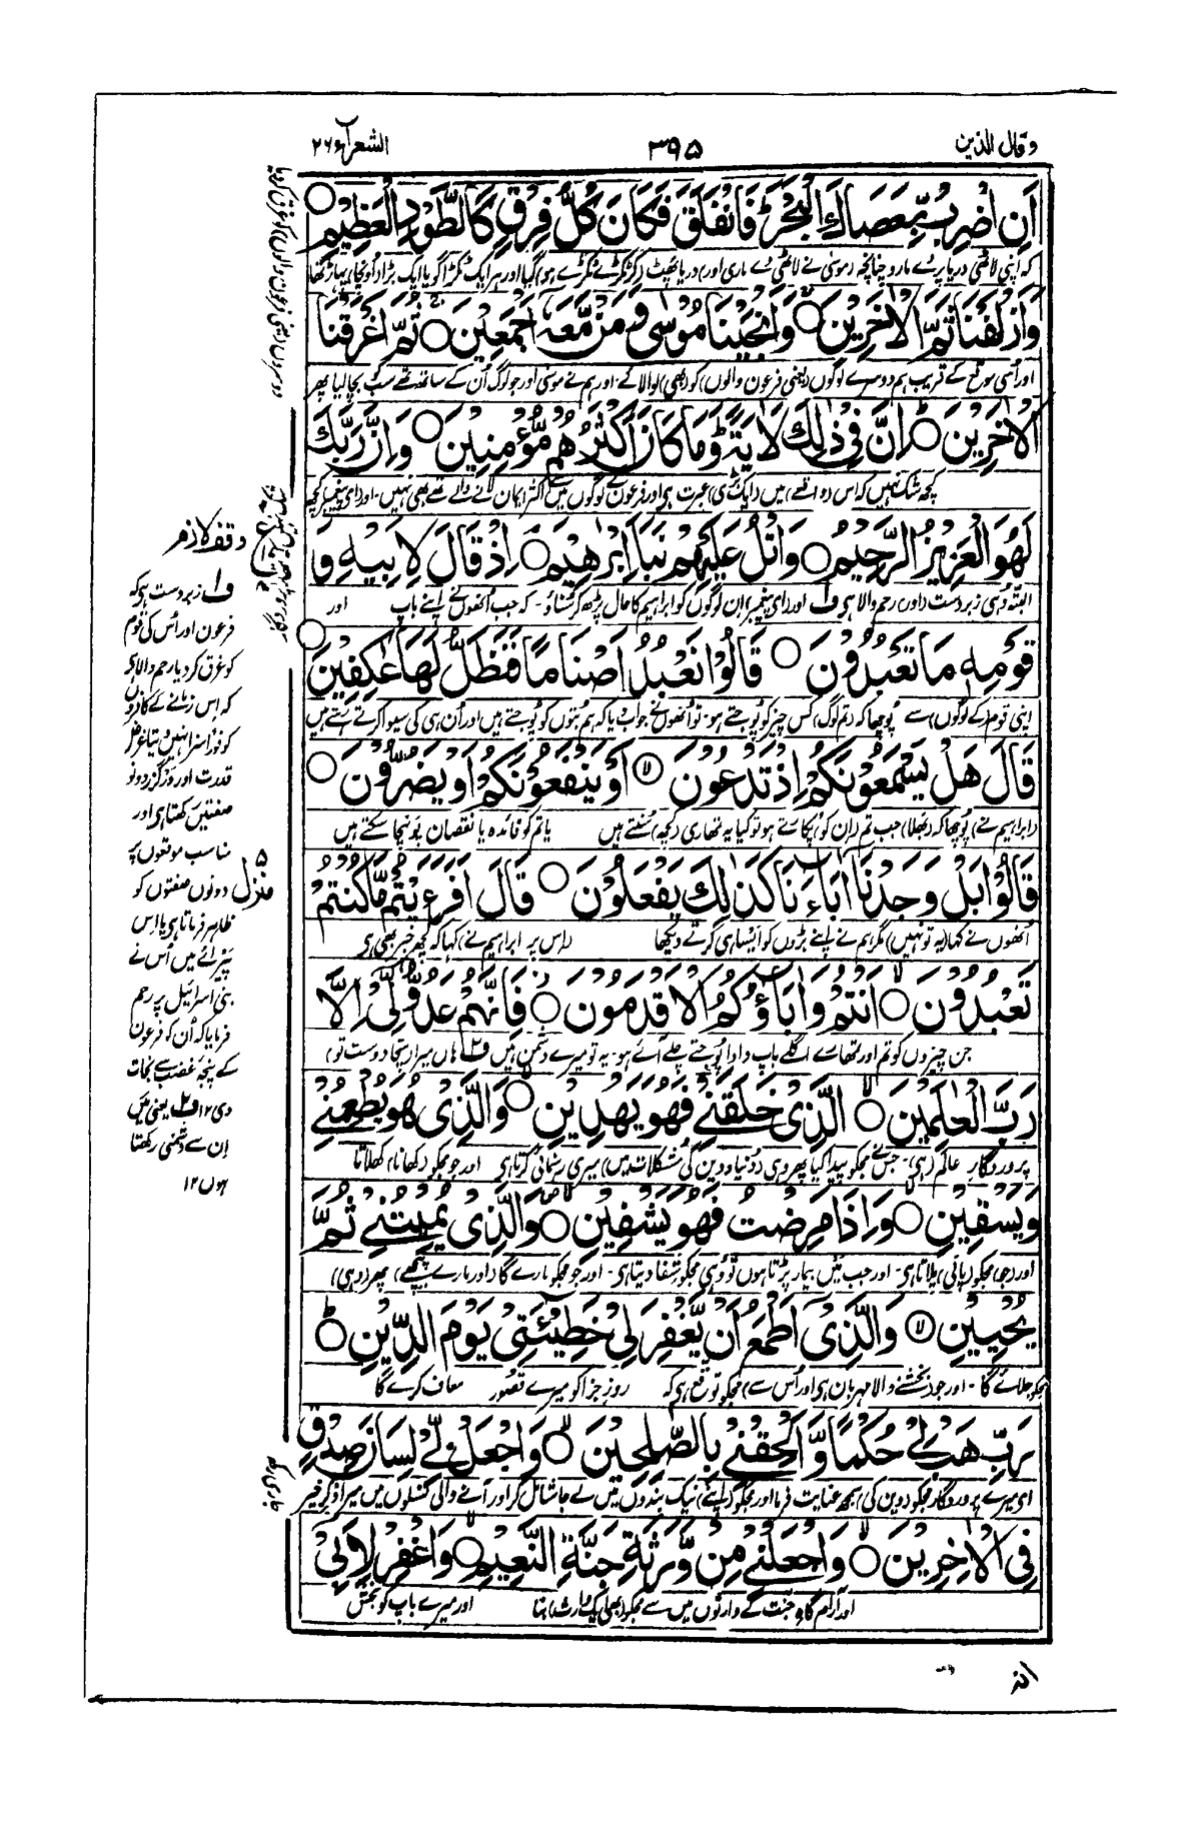 وقال الذین
۳۹۵
الشعرآء ۲۶
اَنِ اضْرِبْ بِّعَصَاكَ الْبَحْرَ ؕ فَانْفَلَقَ فَكَانَ كُلُّ فِرْقٍ كَالطَّوْدِ الْعَظِیْمِ ○
کہ اپنی لاٹھی دریا پر دے مارو چنانچہ (موسیٰ نے لاٹھی دے ماری اور) دریا پھٹ (کر ٹکڑے ٹکڑے ہو) گیا اور ہر ایک ٹکڑا گویا ایک بڑا (اونچا) پہاڑ تھا
وَاَزْلَفْنَا ثَمَّ الْاٰخَرِیْنَ ○ وَاَنْجَیْنَا مُوْسٰی وَمَنْ مَّعَهٗۤ اَجْمَعِیْنَ ○ ثُمَّ اَغْرَقْنَا
اور اُسی موقع کے قریب ہم دوسرے لوگوں (یعنی فرعون والوں) کو (بھی) لوا لائے۔ اور ہم نے موسیٰ اور جو لوگ اُن کے ساتھ تھے سب کو بچالیا پھر
الْاٰخَرِیْنَ ○ؕ اِنَّ فِیْ ذٰلِكَ لَاٰیَةً ؕ وَمَا كَانَ اَكْثَرُهُمْ مُّؤْمِنِیْنَ ○ وَاِنَّ رَبَّكَ
کچھ شک نہیں کہ اس (واقعے) میں (ایک بڑی) عبرت ہی اور فرعون کے لوگوں میں سے اکثر ایمان لانے والے تھے بھی نہیں۔ اور (ای پیغمبر) کچھ
لَهُوَ الْعَزِیْزُ الرَّحِیْمُ ○ وَاتْلُ عَلَیْهِمْ نَبَاَ اِبْرٰهِیْمَ ○ اِذْ قَالَ لِاَبِیْهِ وَ
البتہ وہی زبردست (اور) رحم والا ہی ف۱ اور (ای پیغمبر) اِن لوگوں کو ابراہیم کا حال پڑھ کر سُناؤ۔ کہ جب اُنھوں نے اپنے باپ اور
قَوْمِهٖ مَا تَعْبُدُوْنَ ○ قَالُوْا نَعْبُدُ اَصْنَامًا فَنَظَلُّ لَهَا عٰكِفِیْنَ ○
اپنی قوم (کے لوگوں) سے پوچھا کہ (تم لوگ) کس چیز کو پوجتے ہو۔ تو اُنھوں نے جواب دیا کہ ہم بُتوں کو پوجتے ہیں اور اُن ہی کی سیوا کرتے رہتے ہیں
قَالَ هَلْ یَسْمَعُوْنَكُمْ اِذْ تَدْعُوْنَ ○ اَوْ یَنْفَعُوْنَكُمْ اَوْ یَضُرُّوْنَ ○
(ابراہیم نے) پوچھا کہ (بھلا) جب تم (ان کو) پکارتے ہو تو کیا یہ تمھاری (کچھ) سُنتے ہیں یا تم کو فائدہ یا نقصان پہنچا سکتے ہیں
قَالُوْا بَلْ وَجَدْنَاۤ اٰبَآءَنَا كَذٰلِكَ یَفْعَلُوْنَ ○ قَالَ اَفَرَءَیْتُمْ مَّا كُنْتُمْ
اُنھوں نے کہا (یہ تو نہیں) مگر ہم نے اپنے بڑوں کو ایسا ہی کرتے دیکھا (اس پر ابراہیم نے) کہا کہ کچھ خبر بھی ہی
تَعْبُدُوْنَ ○ اَنْتُمْ وَاٰبَآؤُكُمُ الْاَقْدَمُوْنَ ○ فَاِنَّهُمْ عَدُوٌّ لِّیْۤ اِلَّا
جن چیزوں کو تم اور تمھارے اگلے باپ دادا پوجتے چلے آئے ہو۔ یہ تو میرے دشمن ہیں ف۲ ہاں میرا (سچا دوست تو)
رَبَّ الْعٰلَمِیْنَ ○ الَّذِیْ خَلَقَنِیْ فَهُوَ یَهْدِیْنِ ○ وَالَّذِیْ هُوَ یُطْعِمُنِیْ
پروردگارِ عالم (ہی)۔ جس نے مجکو پیدا کیا پھر وہی (دُنیا و دین کی مشکلات میں) میری رہنمائی کرتا ہی اور جو مجکو (کھانا) کھلاتا
وَیَسْقِیْنِ ○ وَاِذَا مَرِضْتُ فَهُوَ یَشْفِیْنِ ○ وَالَّذِیْ یُمِیْتُنِیْ ثُمَّ
اور (جو) مجکو (پانی) پلاتا ہی۔ اور جب میں بیمار پڑتا ہوں تو وہی مجکو شفا دیتا ہی۔ اور جو مجکو مارے گا (اور مارے پیچھے) پھر (وہی)
یُحْیِیْنِ ○ وَالَّذِیْۤ اَطْمَعُ اَنْ یَّغْفِرَ لِیْ خَطِیْٓئَتِیْ یَوْمَ الدِّیْنِ ○ؕ
مجکو جلائے گا۔ اور جو (بخشنے والا مہربان ہی اور اُس سے) مجکو توقع ہی کہ روزِ جزا کو میرے قصور معاف کرے گا
رَبِّ هَبْ لِیْ حُكْمًا وَّاَلْحِقْنِیْ بِالصّٰلِحِیْنَ ○ وَاجْعَلْ لِّیْ لِسَانَ صِدْقٍ
ای میرے پروردگار مجکو (دین کی) سمجھ عنایت فرما اور مجکو (اپنے) نیک بندوں میں لے جا شامل کر اور آنے والی نسلوں میں میرا ذکرِ خیر
فِی الْاٰخِرِیْنَ ○ وَاجْعَلْنِیْ مِنْ وَّرَثَةِ جَنَّةِ النَّعِیْمِ ○ وَاغْفِرْ لِاَبِیْۤ
اور آرام گاہِ جنت کے وارثوں میں سے مجکو (بھی ایک) وارث بنا اور میرے باپ کو بخش
وقف لازم
ف۱ زبردست ہی کہ
فرعون اور اُس کی قوم
کو غرق کر دیا رحم والا ہی
کہ اِس زمانے کے کافروں
کو فوراً سزا نہیں دیتا غرض
قدرت اور درگزر دونو
صفتیں رکھتا ہی اور
مناسب موقعوں پر
دونوں صفتوں کو
ظاہر فرماتا ہی یا اس
پیرائے میں اُس نے
بنی اسرائیل پر رحم
فرمایا کہ اُن کو فرعون
کے پنجۂ غضب سے نجات
دی ۱۲ ف۲ یعنی میں
اِن سے دشمنی رکھتا
ہوں ۱۲
منزل ۵